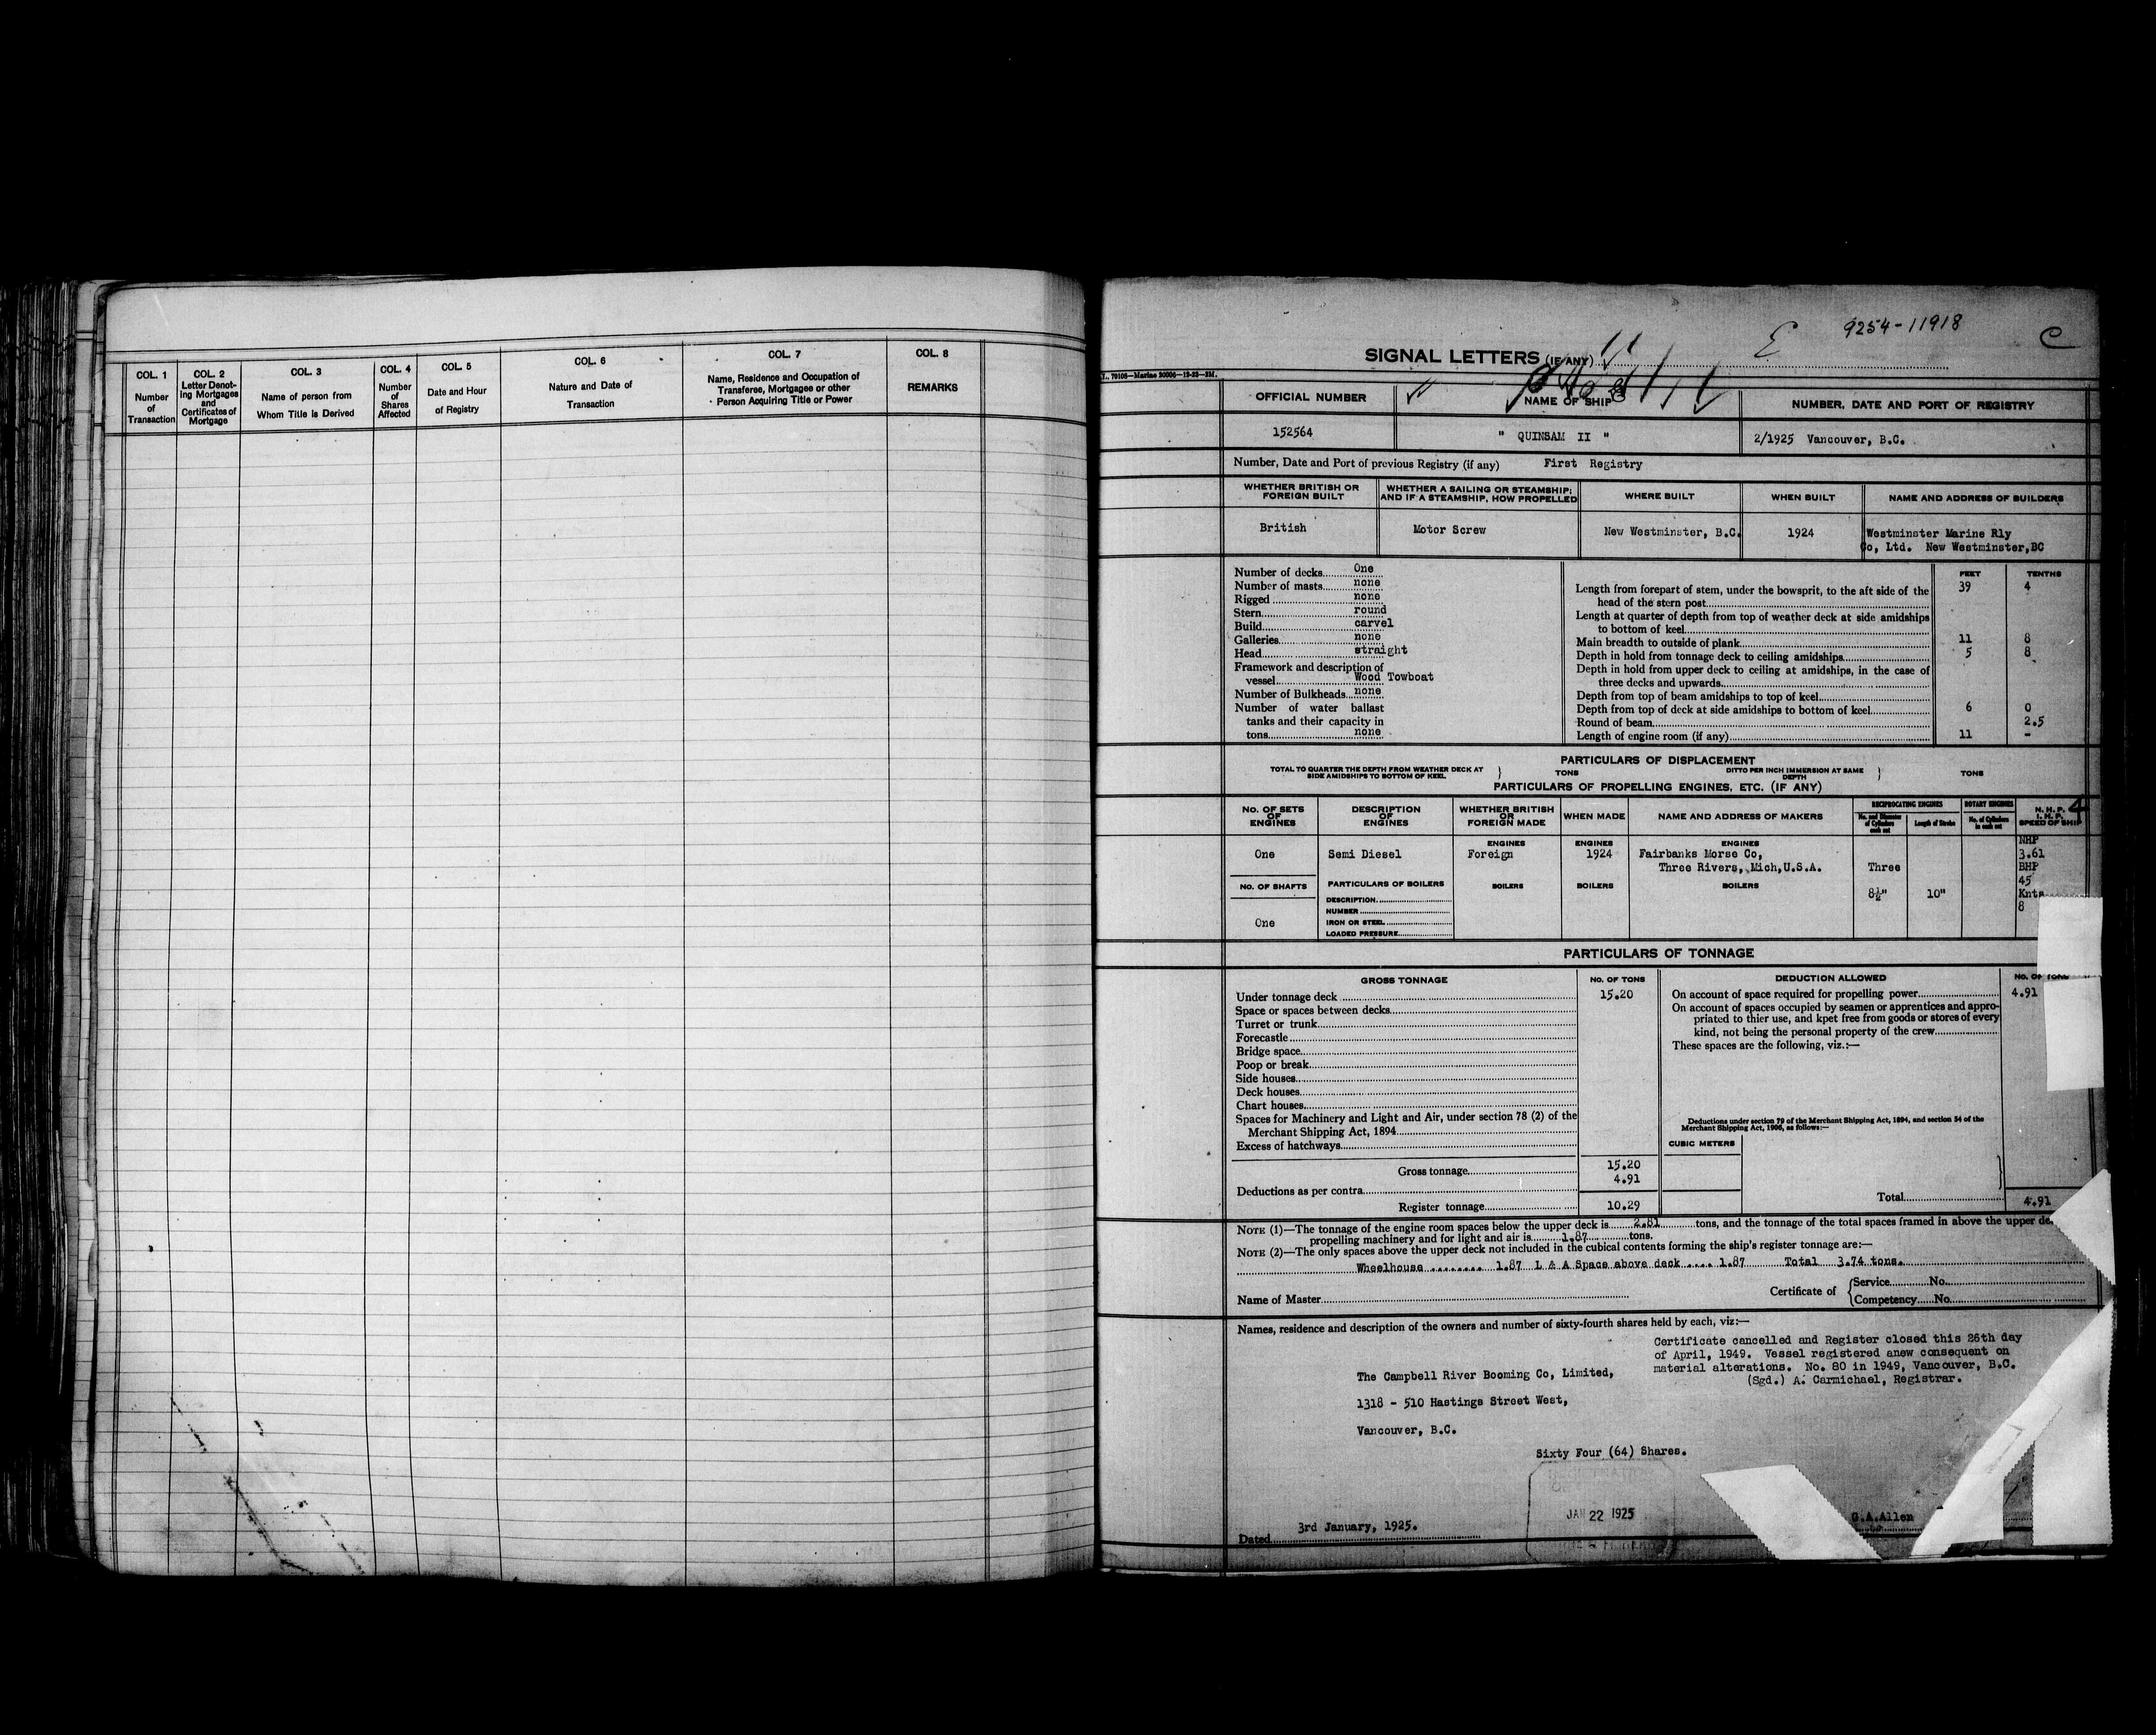 COL. 1
Number
of
Transaction
COL. 2
Letter Denot-
ing Mortgages
and
Certificates of
Mortgage
COL. 3
Name of person from
Whom Title is Derived
COL. 4
Number
of
Shares
Affected
COL. 5
Date and Hour
of Registry
COL. 6
Nature and Date of
Transaction
COL. 7
Name, Residence and Occupation of
Transferee, Mortgagee or other
Person Acquiring Title or Power
COL. 8
REMARKS
9254-11918
E
C
SIGNAL LETTERS (IF ANY)
OFFICIAL NUMBER
NAME OF SHIP
NUMBER, DATE AND PORT OF REGISTRY
152564
" QUINSAM II "
2/1925 Vancouver, B.C.
Number, Date and Port of previous Registry (if any) First Registry
WHETHER BRITISH OR
FOREIGN BUILT
WHETHER A SAILING OR STEAMSHIP;
AND IF A STEAMSHIP, HOW PROPELLED
WHERE BUILT
WHEN BUILT
NAME AND ADDRESS OF BUILDERS
British
Motor Screw
New Westminster, B.C.
1924
Westminster Marine Rly
Co, Ltd. New Westminster,BC
Number of decks One
Number of masts none
Rigged none
Stern round
Build carvel
Galleries none
Head straight
Framework and description of
vessel Wood Towboat
Number of Bulkheads none
Number of water ballast
tanks and their capacity in
tons none
FEET TENTHS
Length from forepart of stem, under the bowsprit, to the aft side of the
head of the stern post 39 4
Length at quarter of depth from top of weather deck at side amidships
to bottom of keel
Main breadth to outside of plank 11 8
Depth in hold from tonnage deck to ceiling amidships 5 8
Depth in hold from upper deck to ceiling at amidships, in the case of
three decks and upwards
Depth from top of beam amidships to top of keel
Depth from top of deck at side amidships to bottom of keel 6 0
Round of beam 2.5
Length of engine room (if any) 11 -
PARTICULARS OF DISPLACEMENT
TOTAL TO QUARTER THE DEPTH FROM WEATHER DECK AT
SIDE AMIDSHIPS TO BOTTOM OF KEEL
TONS
DITTO PER INCH IMMERSION AT SAME
DEPTH
TONS
PARTICULARS OF PROPELLING ENGINES, ETC. (IF ANY)
No. OF SETS
OF
ENGINES
DESCRIPTION
OF
ENGINES
WHETHER BRITISH
OR
FOREIGN MADE
WHEN MADE
NAME AND ADDRESS OF MAKERS
RECIPROCATING ENGINES
No. and Diameter
of Cylinders
each set
Length of Stroke
ROTARY ENGINES
No. of Cylinders
in each set
N. H. P. 4
I. H. P.
SPEED OF SHIP
One
Semi Diesel
ENGINES
Foreign
ENGINES
1924
ENGINES
Fairbanks Morse Co,
Three Rivers, Mich,U.S.A.
Three
8½"
10"
NHP
3.61
BHP
45
Knts
8
NO. OF SHAFTS
One
PARTICULARS OF BOILERS
DESCRIPTION
NUMBER
IRON OR STEEL
LOADED PRESSURE
BOILERS
BOILERS
BOILERS
PARTICULARS OF TONNAGE
GROSS TONNAGE
NO. OF TONS
Under tonnage deck 15.20
Space or spaces between decks
Turret or trunk
Forecastle
Bridge space
Poop or break
Side houses
Deck houses
Chart houses
Spaces for Machinery and Light and Air, under section 78 (2) of the
Merchant Shipping Act, 1894
Excess of hatchways
Gross tonnage 15.20
Deductions as per contra 4.91
Register tonnage 10.29
DEDUCTION ALLOWED
NO. OF TONS
On account of space required for propelling power 4.91
On account of spaces occupied by seamen or apprentices and appro-
priated to thier use, and kpet free from goods or stores of every
kind, not being the personal property of the crew
These spaces are the following, viz.:—
Deductions under section 79 of the Merchant Shipping Act, 1894, and section 54 of the
Merchant Shipping Act, 1906, as follows:—
CUBIC METERS
Total 4.91
NOTE (1)—The tonnage of the engine room spaces below the upper deck is 2.81 tons, and the tonnage of the total spaces framed in above the upper de
propelling machinery and for light and air is 1.87 tons.
NOTE (2)—The only spaces above the upper deck not included in the cubical contents forming the ship's register tonnage are:—
Wheelhouse ........ 1.87 L & A Space above deck .... 1.87 Total 3.74 tons.
Name of Master
Certificate of
Service No.
Competency No.
Names, residence and description of the owners and number of sixty-fourth shares held by each, viz:—
Certificate cancelled and Register closed this 26th day
of April, 1949. Vessel registered anew consequent on
material alterations. No. 80 in 1949, Vancouver, B.C.
(Sgd.) A. Carmichael, Registrar.
The Campbell River Booming Co, Limited,
1318 - 510 Hastings Street West,
Vancouver, B.C.
Sixty Four (64) Shares.
JAN 22 1925
G.A.Allen
Dated 3rd January, 1925.